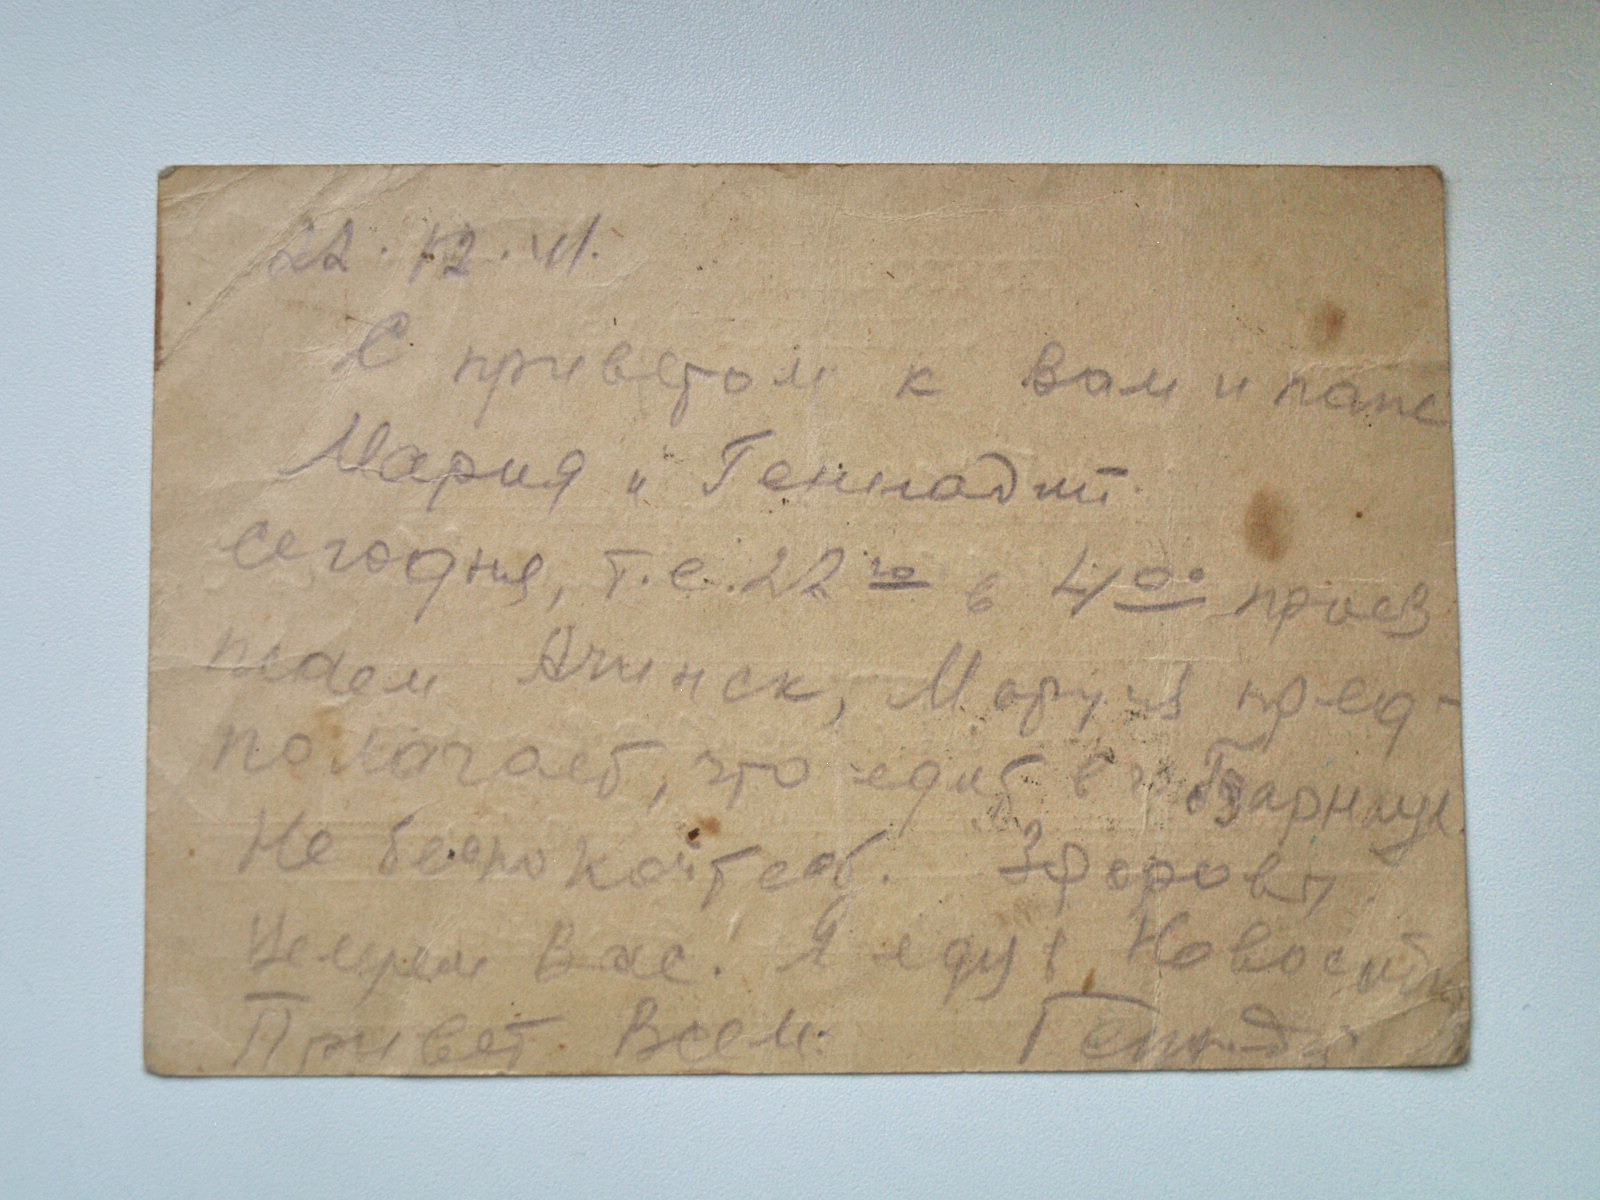 22.12.41.
С приветом к Вам и папе
Мария и Геннадий.
Сегодня, т.е. 22го в 4оо проез
жаем Ачинск, Маруся пред-
полагает, что едит в г. Барнаул.
Не беспокойтесь. Здоровы
Целуем Вас. Я еду в Новосиб
Привет Всем. Геннадий